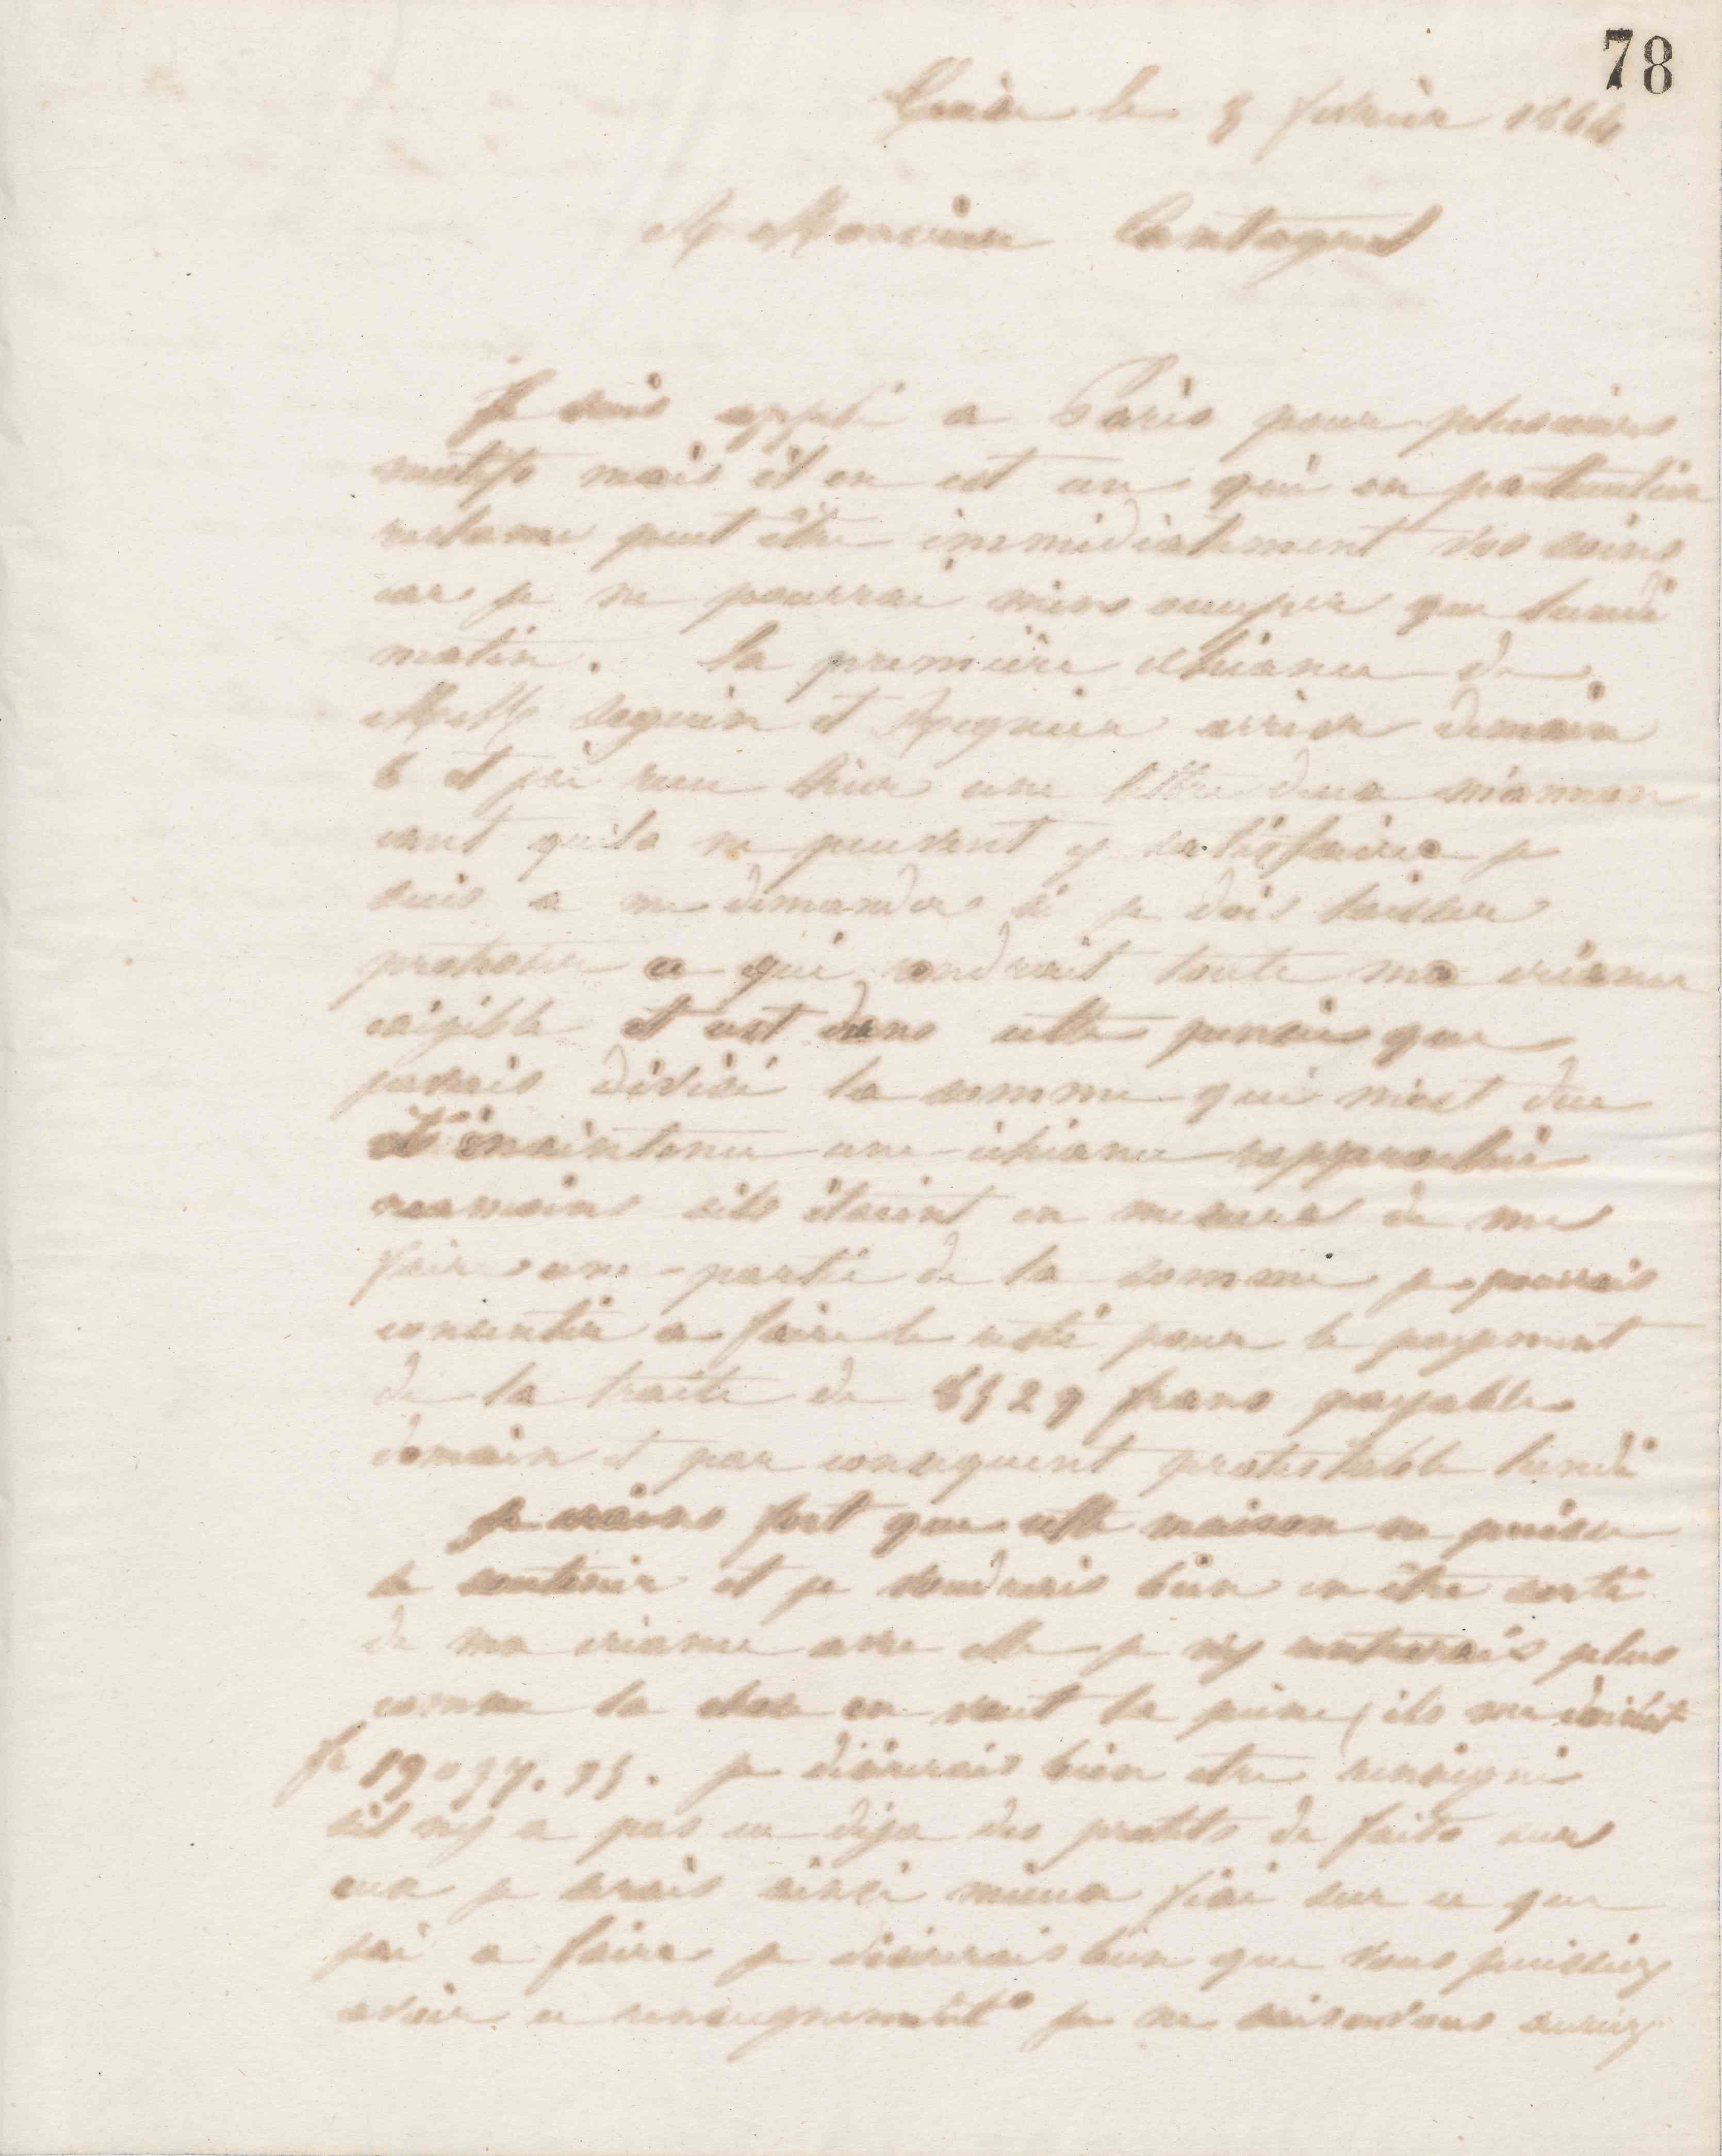 78
Guise le 5 fevrier 1864
A Monsieur Cantagrel
Je suis appelé a Paris pour plusieurs
motifs mais il en est un qui en particulier
reclame peut être immédiatement vos soins
car je ne pourrai m'en occuper que lundi
matin. la première échéance de
MM Seguin et Regnier arrive demain
6 et j'ai recu hier une lettre d'eux m'annon
cant qu'ils ne peuvent y satisfaire je
suis a me demander si je dois laisser
protester ce qui rendrait toute ma créance
exigible et c'est dans cette pensée que
j'avais divisé la somme qui m'est due
et maintenu une échéance rapprochée
néanmoins s'ils étaient en mesure de me
faire une partie de la somme je pourrais
consentir a faire le reste pour le payement
de la traite de 8529 francs payable
demain et par consequent protestable lundi
je crains fort que cette maison ne puisse
se soutenir et je voudrais bien en être sorti
de ma créance avec elle je n'y rentrerais plus
comme la chose en vaut la peine (ils me doivent
fr je désirerais bien etre renseigné
s'il n'y a pas eu deja des protêts de faits sur
eux je serais ainsi mieux fixé sur ce que
j'ai a faire je désirerais bien que vous puissiez
avoir ce renseignement je ne sais si vous auriez